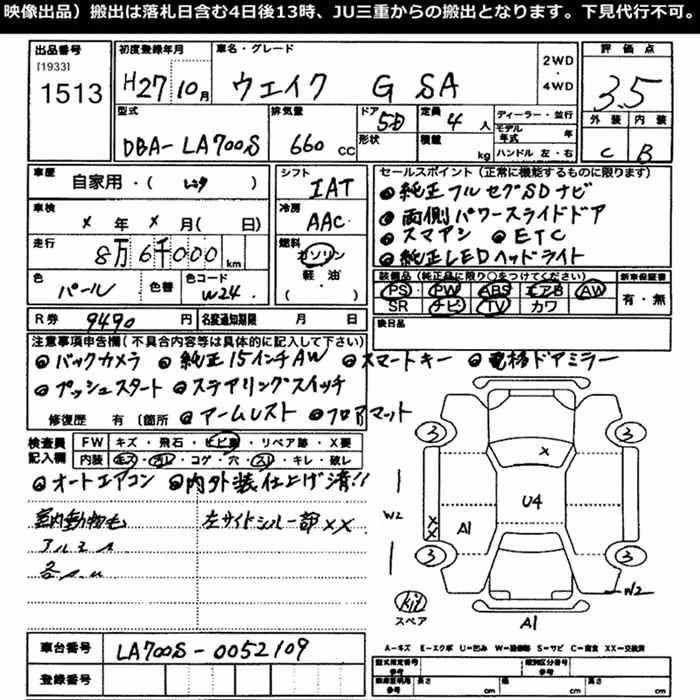 映像出品）搬出は落札日含む4日後13時、JU三重からの搬出となります。下見代行不可。
出品番号 [1933] 1513
初度登録年月 H27 10月
車名・グレード ウェイク G SA
2WD・4WD
評価点 3.5
外装 C 内装 B
型式 DBA-LA700S
排気量 660 cc
ドア 5D 形状
定員 4人 積載 kg
ディーラー・並行
モデル年式 年
ハンドル 左・右
車歴 自家用・( レンタ )
車検 × 年 × 月( 日)
走行 8万6千000 km
色 パール 色替
色コード W24
シフト IAT
冷房 AAC
燃料 ガソリン 軽・油 ( )
セールスポイント (正常に機能するものに限ります)
●純正フルセグSDナビ
●両側パワースライドドア
●スマアシ ●ETC
●純正LEDヘッドライト
装備品 (純正品に限り○をつけてください)
PS PW ABS エアB AW
SR ナビ TV カワ
新車保証書 有・無
R券 9490 円 名変通知期限 月 日
後日品
注意事項申告欄(不具合内容等は具体的に記入して下さい)
●バックカメラ ●純正15インチAW ●スマートキー ●電格ドアミラー
●プッシュスタート ●ステアリングスイッチ
修復歴 有 [箇所 ●アームレスト ●フロアマット
検査員記入欄
FW キズ・飛石・ヒビ裏・リペア跡・X要
内装 キズ・ヨゴレ・コゲ・穴・スレ・キレ・破レ
●オートエアコン ●内外装仕上げ済!!
室内動物毛 左サイドシル一部××
3 3
×
U4
W2
A1
××
3 3
W2
kit
スペア
A1
車台番号 LA700S-0052109
登録番号
A−キズ E−エクボ U−凹み W−補修跡 S−サビ C−腐食 XX−交換済
型式指定番号 参考
類別区分番号 参考
長さ cm 幅 cm 高さ cm